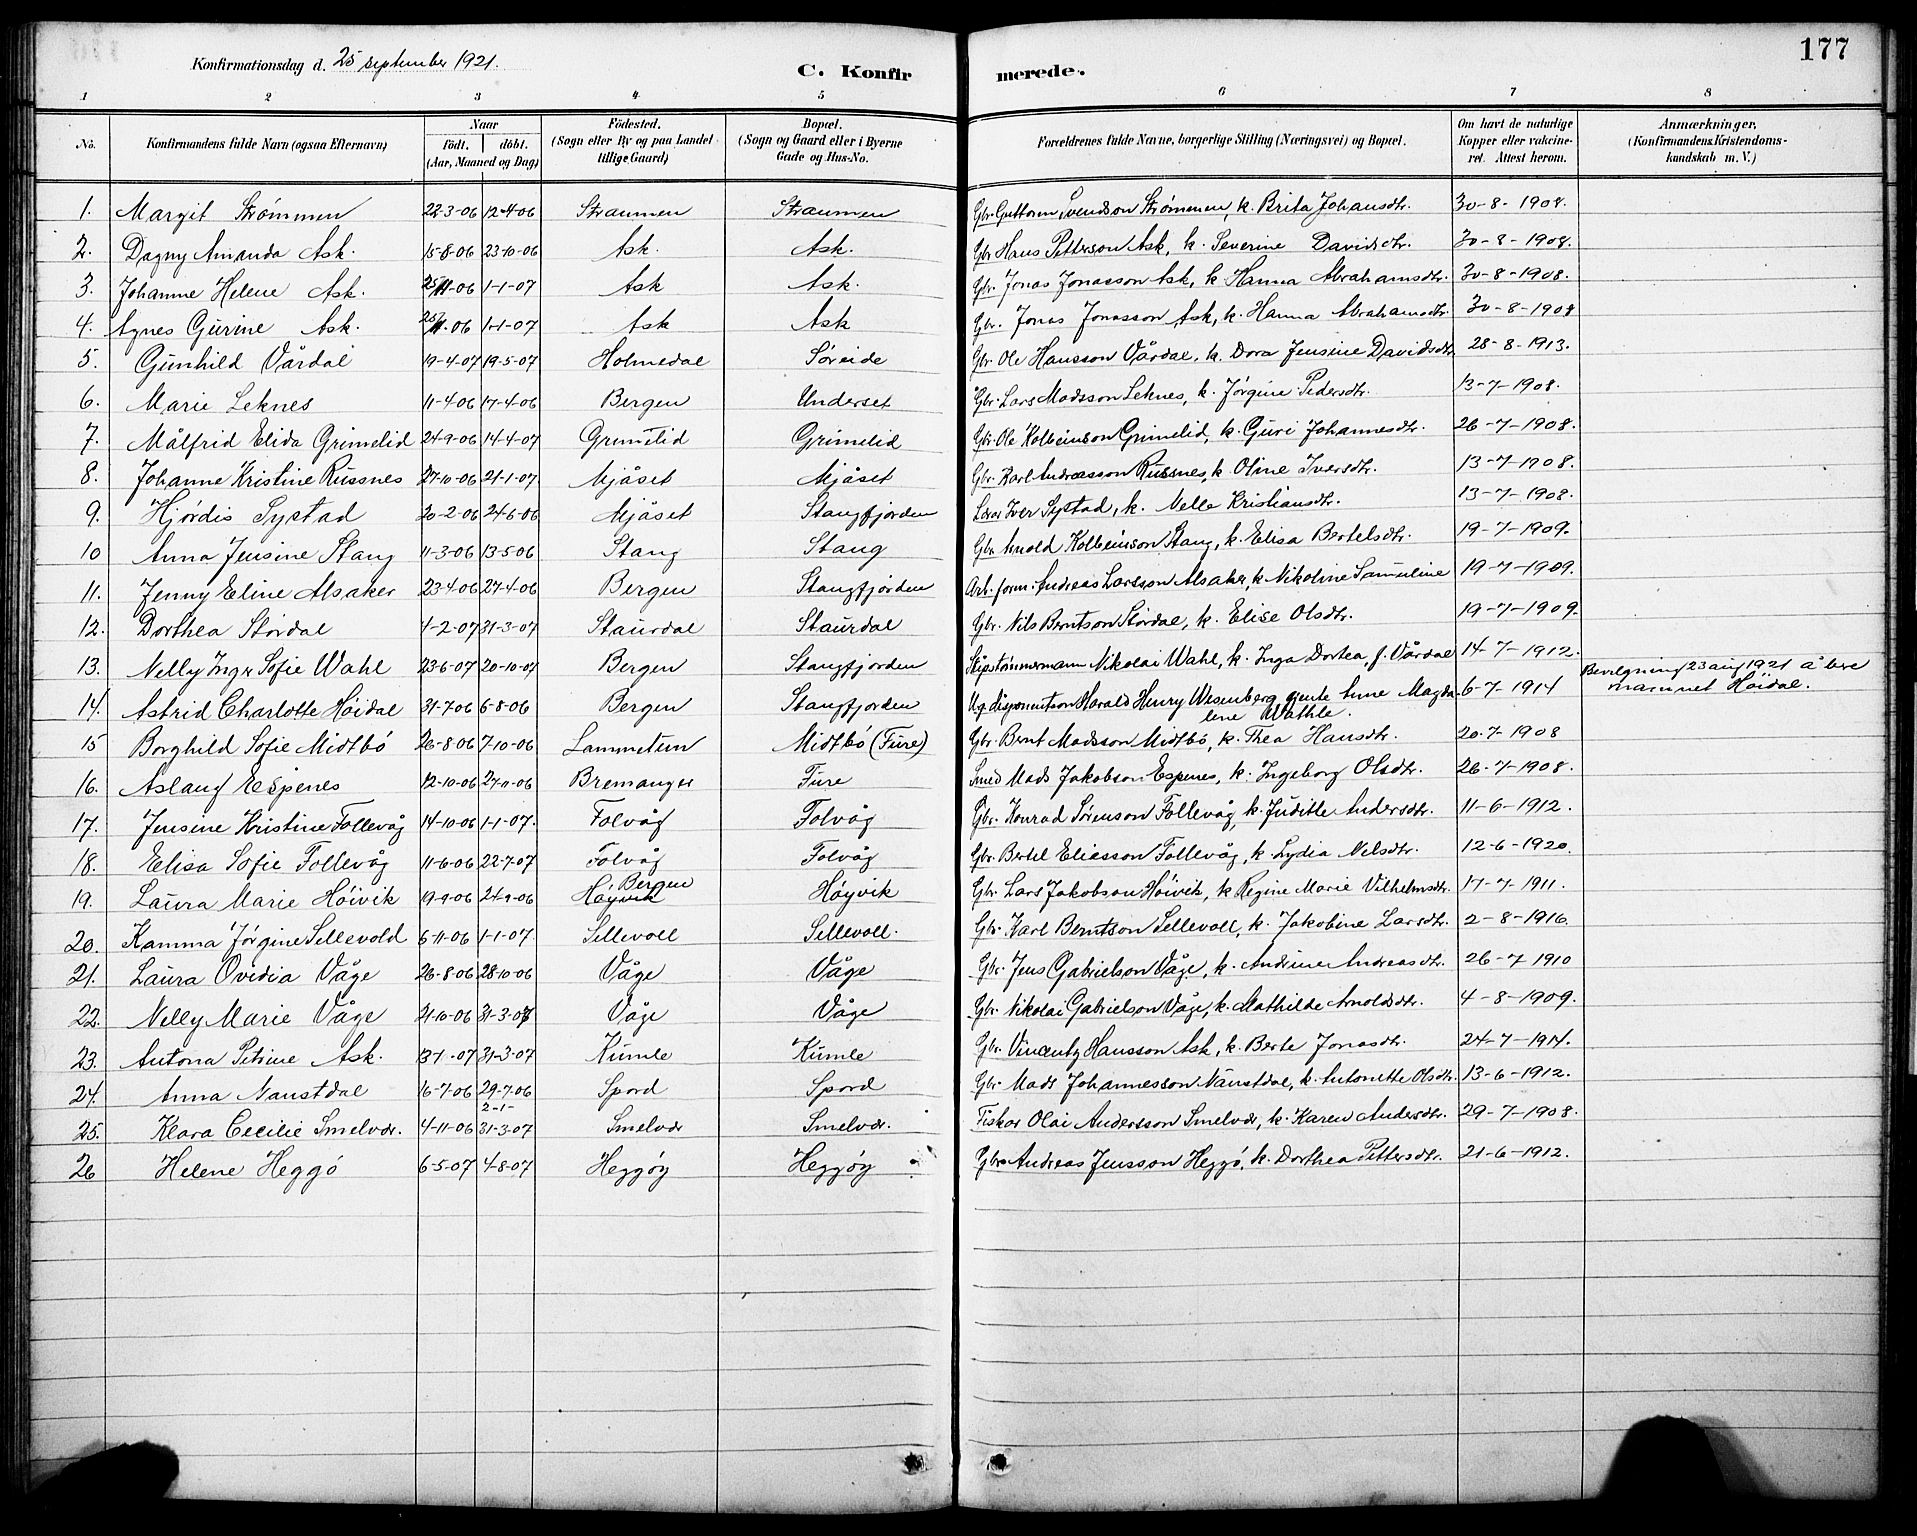 177
Konfirmationsdag d. 25 september 1921.
C. Konfirmerede.
1 2 3 4 5 6 7 8
No. | Konfirmandens fulde Navn (ogsaa Efternavn) | Naar født. døbt. (Aar, Maaned og Dag) | Fødested. (Sogn eller By og paa Landet tillige Gaard) | Bopæl. (Sogn og Gaard eller i Byerne Gade og Hus-No. | Forældrenes fulde Navne, borgerlige Stilling (Næringsvei) og Bopæl. | Om havt de naturlige Kopper eller vakcineret. Attest herom. | Anmærkninger. (Konfirmandens Kristendomskundskab m. V.)
1. Margit Strømmen | 22-3-06 | 12-4-06 | Straumen | Straumen | Gbr. Guttorm Svendson Strømmen, k. Brita Johansdtr. | 30-8-1908.
2. Dagny Amanda Ask. | 15-8-06 | 23-10-06 | Ask. | Ask. | Gbr. Hans Petterson Ask, k. Severine Davidsdtr. | 30-8-1908.
3. Johanne Helene Ask. | 25/11-06 | 1-1-07 | Ask | Ask. | Gbr. Jonas Jonasson Ask, k. Hanna Abrahamsdtr. | 30-8-1908.
4. Agnes Gurine Ask. | 25/11-06 | 1-1-07 | Ask | Ask | Gbr. Jonas Jonasson Ask, k. Hanna Abrahamsdtr. | 30-8-1908
5. Gunhild Vårdal | 19-4-07 | 19-5-07 | Holmedal | Søreide | Gbr. Ole Hansson Vårdal, k. Dora Jensine Davidsdtr. | 28-8-1913.
6. Marie Leknes | 11-4-06 | 17-4-06 | Bergen | Underset | Gbr. Lars Madsson Leknes, k. Jørgine Pedersdtr. | 13-7-1908.
7. Målfrid Elida Grimelid | 24-9-06 | 14-4-07 | Grimelid | Grimelid | Gbr. Ole Kolbeinson Grimelid, k. Guri Johannesdtr. | 26-7-1908.
8. Johanne Kristine Russnes | 27-10-06 | 21-1-07 | Mjåset | Mjåset | Gbr. Karl Andreasson Russnes, k. Oline Iversdtr. | 13-7-1908.
9. Hjørdis Systad | 20-2-06 | 24-6-06 | Mjåset | Stangfjorden | Lærar Iver Systad, k. Nelle Kristiansdtr. | 13-7-1908.
10 Anna Jensine Stang | 11-3-06 | 13-5-06 | Stang | Stang | Gbr. Arnold Kolbeinson Stang, k. Elisa Bertelsdtr. | 19-7-1909.
11. Jenny Eline Alsaker | 23-4-06 | 27-4-06 | Bergen | Stangfjorden | Arb.form. Andreas Larsson Alsaker, k. Nikoline Samueline | 19-7-1909.
12. Dorthea Stordal | 4-2-07 | 31-3-07 | Staurdal | Staurdal | Gbr. Nils Berntson Stordal, k. Elise Olsdtr. | 19-7-1909.
13. Nelly Inga Sofie Wahl | 23-6-07 | 20-10-07 | Bergen | Stangfjorden | Skipstømmermann Nikolai Wahl, k. Inga Dortea, f. Vårdal | 14-7-1912.
14. Astrid Charlotte Høidal | 31-7-06 | 6-8-06 | Bergen | Stangfjorden | Ug. disponentson Harald Henry Wesenberg, gjente Anne Magdalene Wathle. | 6-7-1914 | Bevilgning 23 aug 1921 å bere namnet Høidal.
15 Borghild Sofie Midtbø | 26-8-06 | 7-10-06 | Lammetun | Midtbø (Fure) | Gbr. Bernt Madsson Midtbø, k. Thea Hansdtr. | 20-7-1908
16. Aslaug Espenes | 12-10-06 | 24-11-06 | Bremanger | Fure | Smed Mads Jakobson Espenes, k. Ingeborg Olsdtr. | 26-7-1908.
17. Jensine Kristine Follevåg | 14-10-06 | 1-1-07. | Folvåg | Folvåg | Gbr. Konrad Sørenson Follevåg, k. Judithe Andersdtr. | 11-6-1912.
18. Elisa Sofie Follevåg | 11-6-06 | 22-7-07 | Folvåg | Folvåg | Gbr. Bertel Eliasson Follevåg, k. Lydia Nilsdtr. | 12-6-1920.
19. Laura Marie Høivik | 19-9-06 | 24-9-06 | Bergen Høyvik | Høyvik | Gbr. Lars Jakobson Høivik, k. Regine Marie Vilhelmsdtr. | 17-7-1911.
20. Kamma Jørgine Sellevold | 6-11-06 | 1-1-07. | Sellevoll | Sellevoll. | Gbr. Karl Berntson Sellevoll, k. Jakobine Larsdtr. | 2-8-1916.
21. Laura Ovidia Våge | 26-8-06 | 28-10-06 | Våge | Våge | Gbr. Jens Gabrielson Våge, k. Andrine Andreasdtr. | 26-7 1910
22. Nelly Marie Våge | 31-10-06 | 31-3-07 | Våge | Våge | Gbr. Nikolai Gabrielson Våge, k. Mathilde Arnoldsdtr. | 4-8-1909.
23. Antona Petrine Ask. | 13-1-07 | 31-3-07 | Kumle | Kumle | Gbr. Vincentz Hansson Ask, k. Berte Jonasdtr. | 24-7-1914.
24. Anna Naustdal | 16-7-06 | 29-7-06 | Spord | Spord | Gbr. Mads Johannesson Naustdal, k. Antonette Olsdtr. | 13-6-1912.
25. Klara Cecilie Smelvær. | 4-11-06 | 2-1- 31-3-07 | Smelvær | Smelvær. | Fiskar Olai Andersson Smelvær, k. Karen Andersdtr. | 29-7-1908.
26 Helene Heggø | 6-5-07 | 4-8-07 | Heggøy | Heggøy | Gbr. Andreas Jensson Heggø, k. Dorthea Pettersdtr. | 21-6-1912.